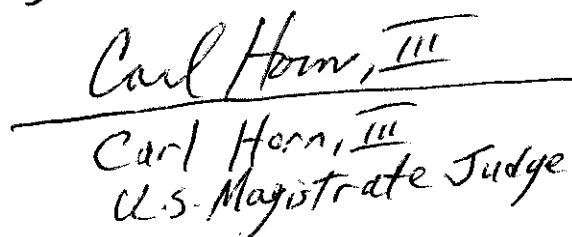 Carl Horn, III
Carl Horn, III
U.S. Magistrate Judge